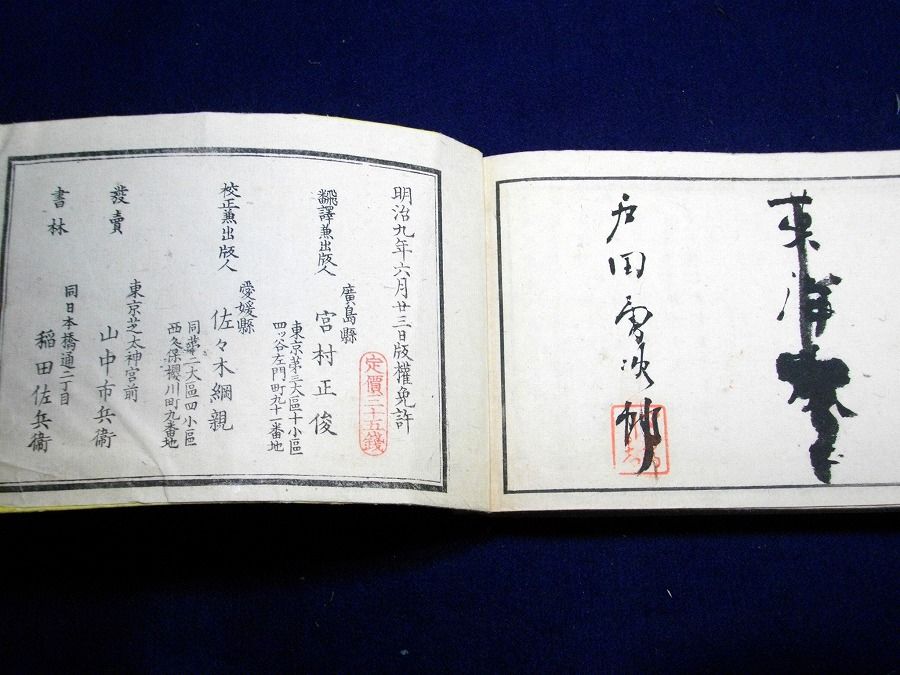 戸田
明治九年六月廿三日版權免許
定價三十五錢
飜譯兼出版人
廣島縣
宮村正俊
東京第三大區十小區
四ッ谷左門町九十一番地
校正兼出版人
愛媛縣
佐々木綱親
同第二大區四小區
西久保櫻川町九番地
發賣
東京芝太神宮前
山中市兵衞
書林
同日本橋通二丁目
稲田佐兵衞